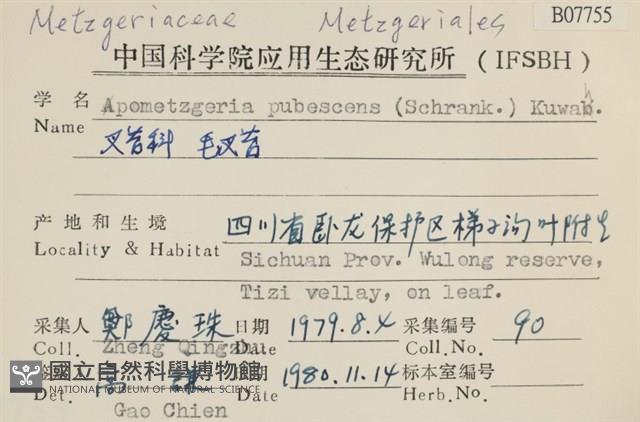 Metzgeriaceae Metzgeriales B07755
中国科学院应用生态研究所 (IFSBH)
学名 Apometzgeria pubescens (Schrank.) Kuwah.
Name
叉苔科 毛叉苔
产地和生境 四川省卧龙保护区梯子沟叶附生
Locality & Habitat Sichuan Prov. Wulong reserve,
Tizi vellay, on leaf.
采集人 鄭慶珠 日期 1979.8.4 采集编号 90
Coll. Zheng Qingzhu Date Coll.No.
國立自然科學博物館 期 1980.11.14 标本室编号
NATIONAL MUSEUM OF NATURAL SCIENCE
Det. Date Herb.No.
Gao Chien